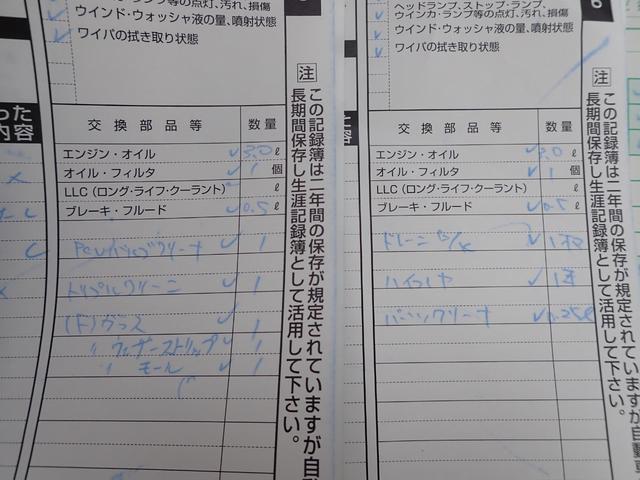 等の点灯、汚れ、損傷
ウインド・ウォッシャ液の量、噴射状態
ワイパの拭き取り状態
交換部品等 数量
エンジン・オイル ✓3.0 ℓ
オイル・フィルタ ✓1 個
LLC(ロング・ライフ・クーラント) ℓ
ブレーキ・フルード ✓0.5 ℓ
✓ 1
✓ 1
(F)ガラス ✓ 1
〃 ウェザーストリップ ✓ 1
〃 モール ✓ 1
った
内容
注 この記録簿は二年間の保存が規定されていますが自動
長期間保存し生涯記録簿として活用して下さい。
ヘッドランプ、ストップ・ランプ、
ウインカ・ランプ等の点灯、汚れ、損傷
ウインド・ウォッシャ液の量、噴射状態
ワイパの拭き取り状態
交換部品等 数量
エンジン・オイル ✓3.0 ℓ
オイル・フィルタ ✓1 個
LLC(ロング・ライフ・クーラント) ℓ
ブレーキ・フルード ✓0.5 ℓ
✓1
✓1
パーツクリーナ ✓0.25ℓ
注 この記録簿は二年間の保存が規定されていますが自動車
長期間保存し生涯記録簿として活用して下さい。